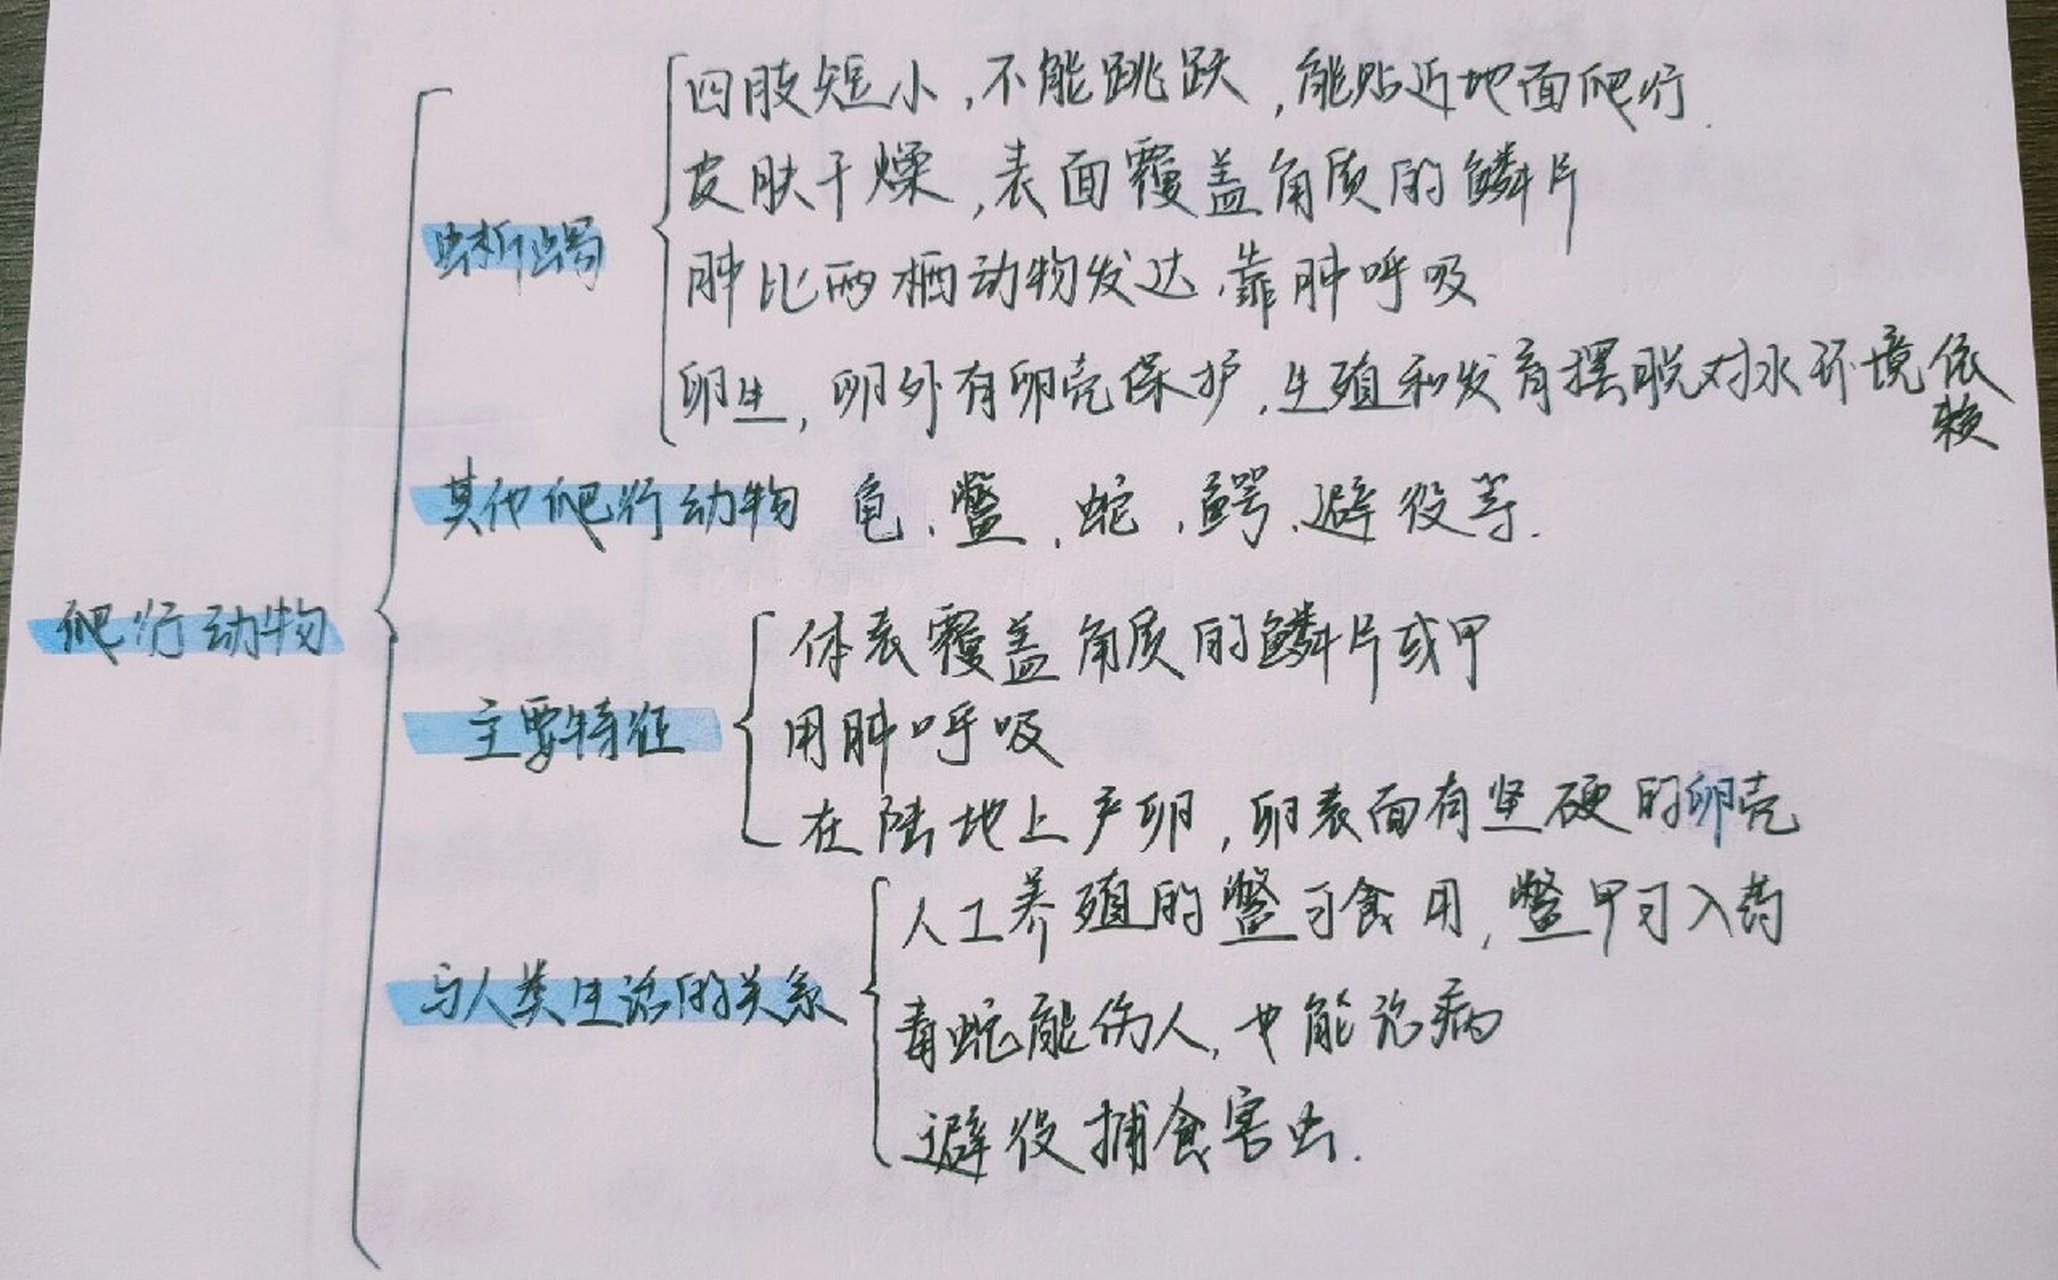 四肢短小,不能跳跃,能贴近地面爬行.
皮肤干燥,表面覆盖角质的鳞片
蜥蜴
肺比两栖动物发达,靠肺呼吸
卵生,卵外有卵壳保护,生殖和发育摆脱对水环境依赖
其他爬行动物 龟、鳖、蛇、鳄、避役等.
爬行动物
体表覆盖角质的鳞片或甲
主要特征 用肺呼吸
在陆地上产卵,卵表面有坚硬的卵壳
人工养殖的鳖可食用,鳖甲可入药
与人类生活的关系
毒蛇能伤人,也能治病
避役捕食害虫.